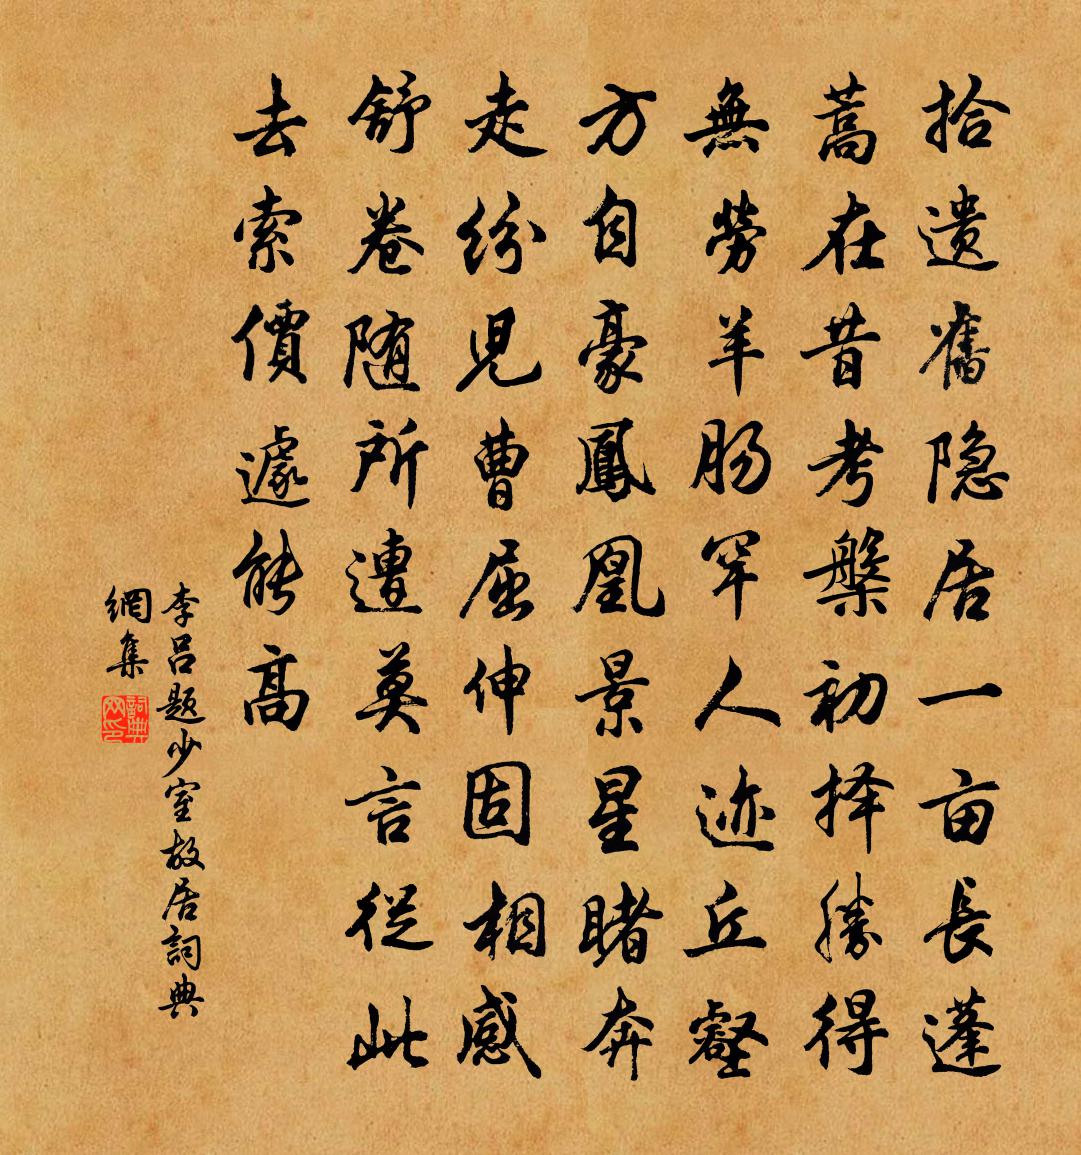 拾遗舊隐居一亩長蓬
蒿在昔考槃初择勝得
無勞羊肠罕人迹丘壑
方自豪鳳凰景星睹奔
走纷児曹屈伸固相感
舒卷随所遭莫言從此
去索價遽能高
李吕题少室故居詞典
網集